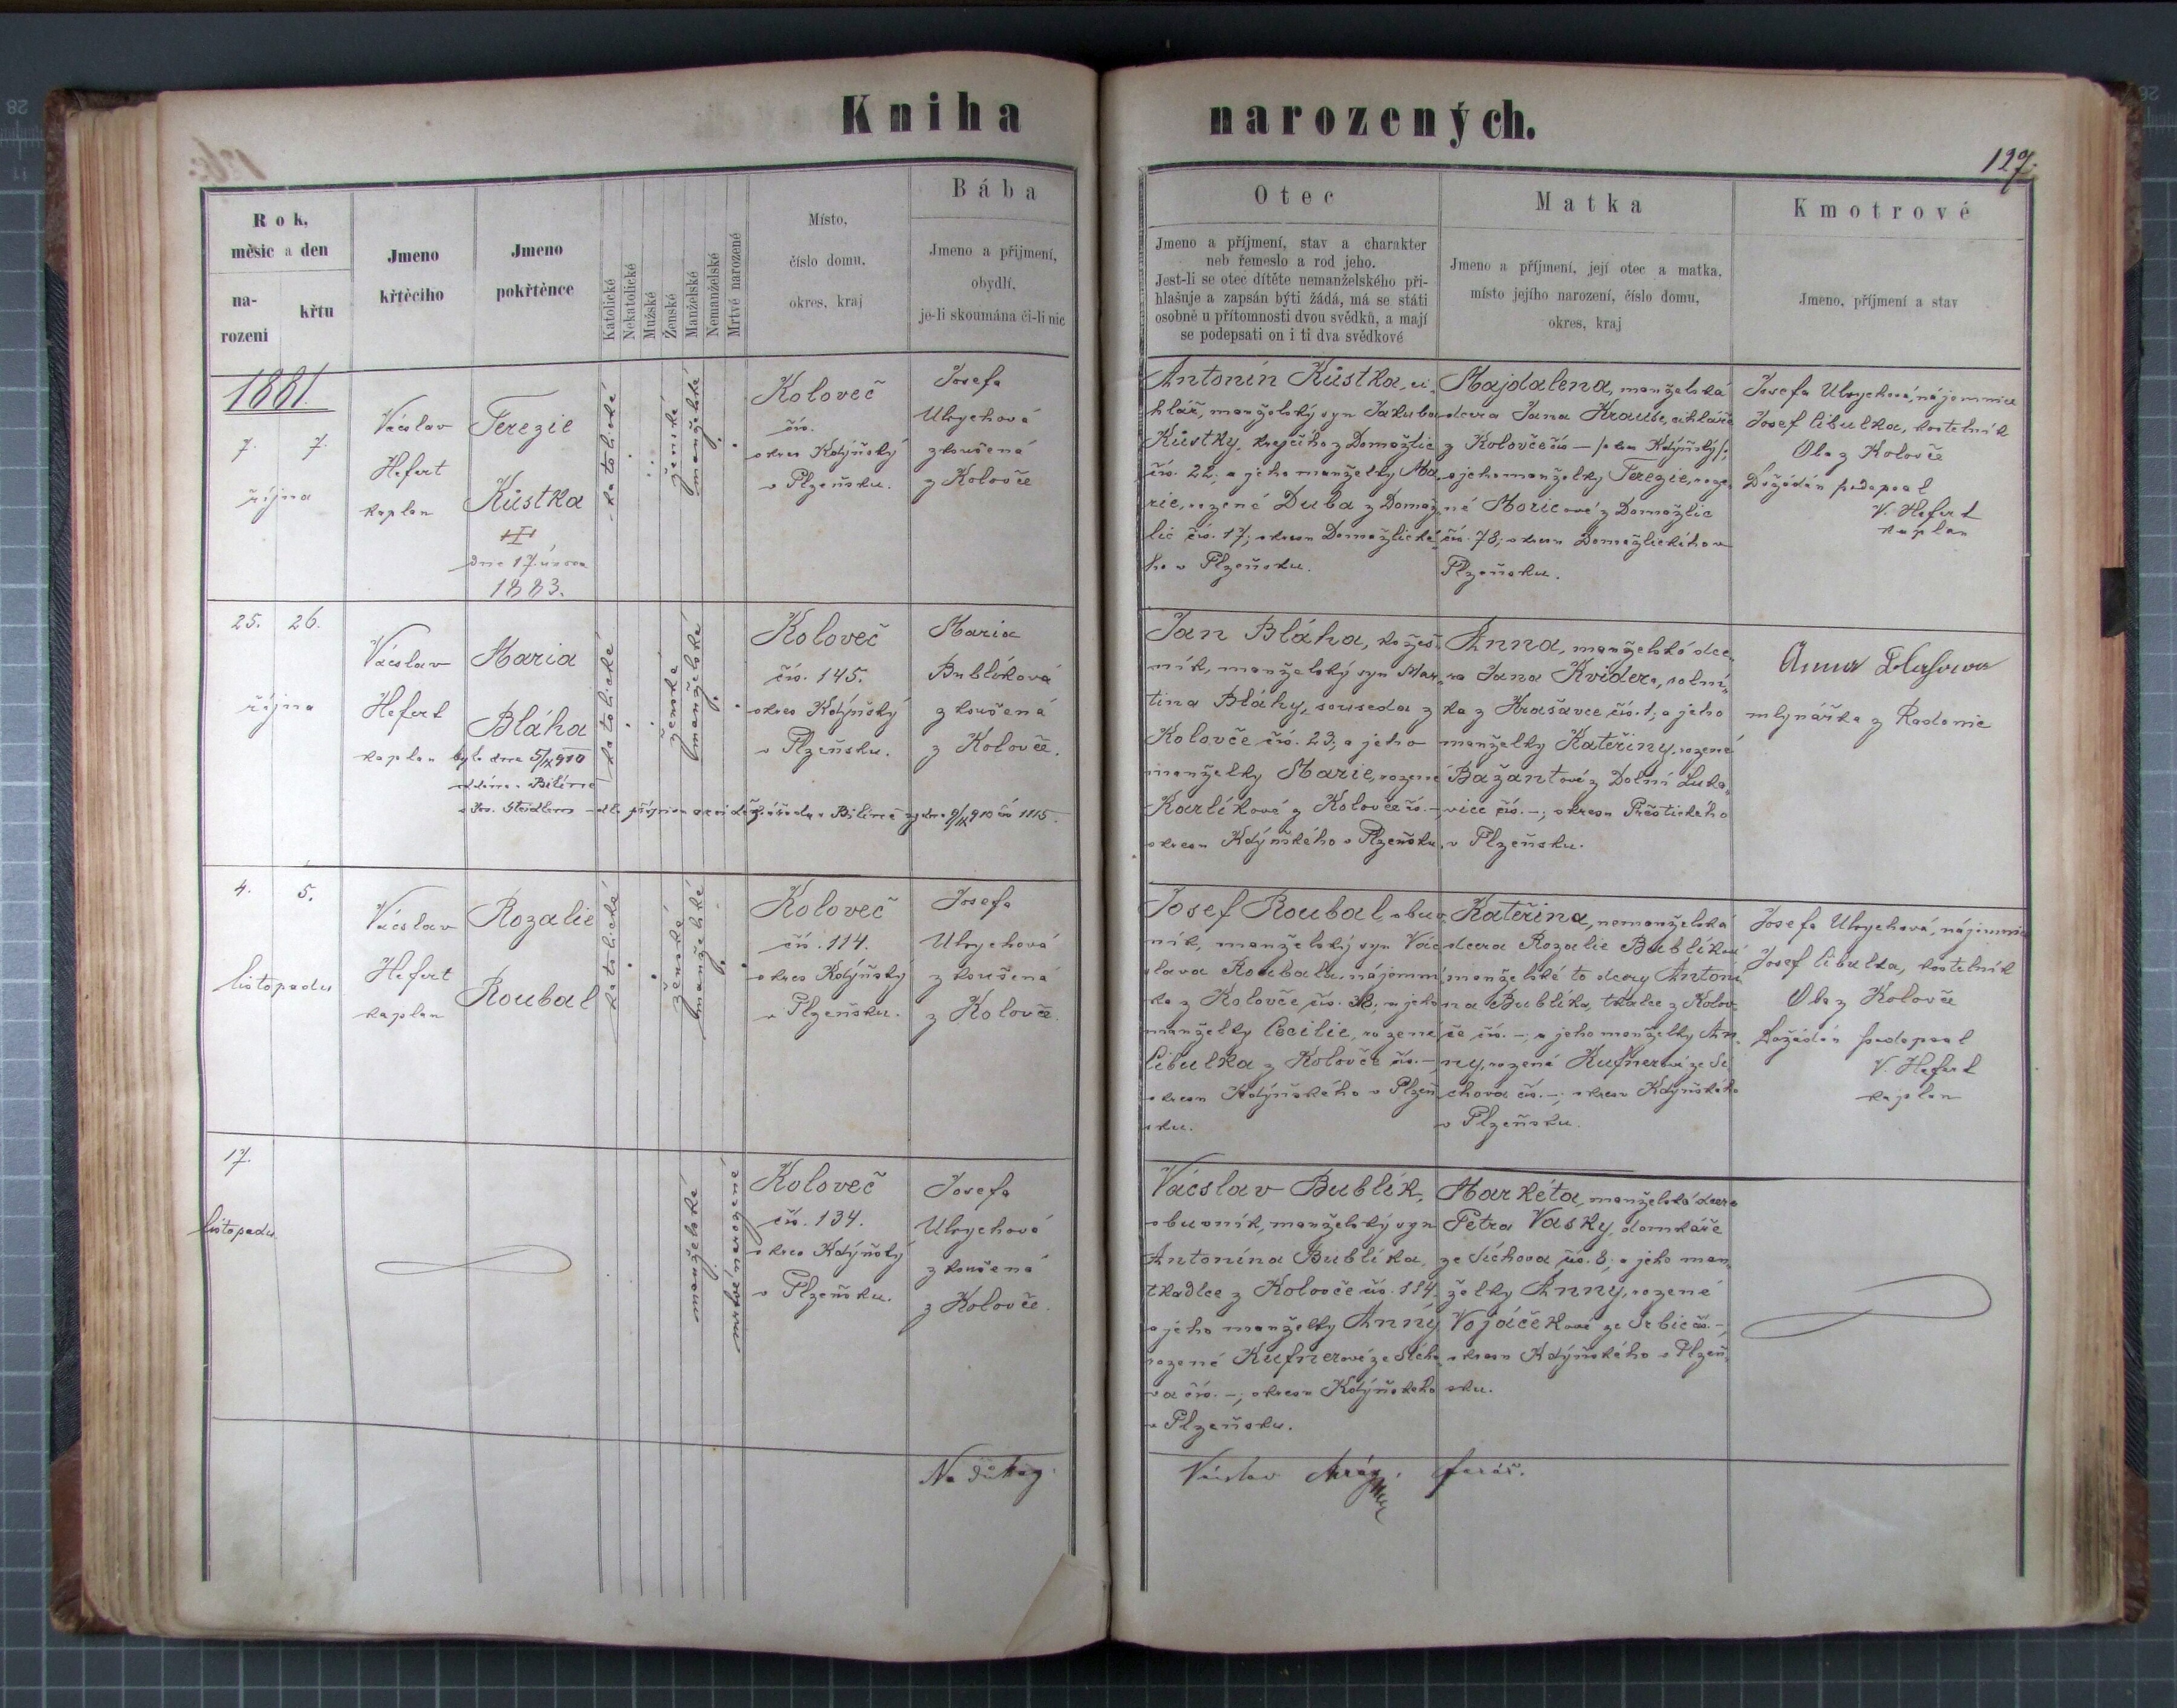 Kniha narozených.
127.
Rok,
měsic a den
na-
rozeni
křtu
Jmeno
křtěciho
Jmeno
pokřtěnce
Katolické
Nekatolické
Mužské
Ženské
Manželské
Nemanželské
Mrtvé narozené
Místo,
číslo domu,
okres, kraj
Bába
Jmeno a příjmení,
obydlí,
je-li skoumána či-li nic
Otec
Jmeno a příjmení, stav a charakter
neb řemeslo a rod jeho.
Jest-li se otec dítěte nemanželského při-
hlašuje a zapsán býti žádá, má se státi
osobně u přítomnosti dvou svědků, a mají
se podepsati on i ti dva svědkové
Matka
Jmeno a příjmení, její otec a matka,
místo jejího narození, číslo domu,
okres, kraj
Kmotrové
Jmeno, příjmení a stav
1881.
7. 7.
října
Vácslav
Hefert
kaplan
Terezie
Kůstka
dne 17. února
1883.
katolické
ženské
manželské
Koloveč
čís.
okres Kdýňský
v Plzeňsku.
Josefa
Ulrychová
zkoušená
z Kolovče
Antonín Kůstka, ci-
hlář, manželský syn Jakuba
Kůstky, krejčího z Domažlic
čís. 22, a jeho manželky Ma-
rie, rozené Duba z Domaž-
lic čís. 17; okresu Domažlické-
ho v Plzeňsku.
Majdalena, manželská
dcera Jana Krause, cihláře
z Kolovče čís — okres Kdýňský
a jeho manželky Terezie, roze-
né Moricové z Domažlic
čís. 78; okresu Domažlického v
Plzeňsku.
Josefa Ulrychová, nájemnice
Josef Cibulka, kostelník
Oba z Kolovče
Dožádán podepsal
V. Hefert
kaplan
25. 26.
října
Vácslav
Hefert
kaplan
Maria
Bláha
byla dne 5/IX 910
oddána v Bílině
katolické
ženské
manželské
Koloveč
čís. 145.
okres Kdýňský
v Plzeňsku.
Maria
Bublíková
zkoušená
z Kolovče.
Jan Bláha, kožeš-
ník, manželský syn Mar-
tina Bláhy, souseda z
Kolovče čís. 23; a jeho
manželky Marie, rozené
Karlíkové z Kolovče čís. —
okresu Kdýňského v Plzeňsku.
Anna, manželská dce-
ra Jana Kvidera, rolní-
ka z Hrašavce čís. 1; a jeho
manželky Kateřiny, rozené
Bažantové z Dolní Luka-
vice čís. —; okresu Přeštického
v Plzeňsku.
Anna
mlynářka z Radonic
4. 5.
listopadu
Vácslav
Hefert
kaplan
Rozalie
Roubal
katolické
ženské
manželské
Koloveč
čís. 114.
okres Kdýňský
v Plzeňsku.
Josefa
Ulrychová
zkoušená
z Kolovče.
Josef Roubal obuv-
ník, manželský syn Vác-
slava Roubala, nájemní-
ka z Kolovče, čís. 38; a jeho
manželky Cecilie, rozené
Cibulka z Kolovče čís. —
okresu Kdýňského v Plzeň-
sku.
Kateřina, nemanželská
dcera Rozalie Bublíkové
manželské to dcery Antoní-
na Bublíka, tkalce z Kolov-
če čís. —; a jeho manželky An-
ny, rozené Kufnerové ze Sí-
chova čís. —; okresu Kdýňského
v Plzeňsku.
Josefa Ulrychová, nájemnice
Josef Cibulka, kostelník
Oba z Kolovče
Dožádán podepsal
V. Hefert
kaplan
17.
listopadu
manželské
mrtvě narozené
Koloveč
čís. 134.
okres Kdýňský
v Plzeňsku.
Josefa
Ulrychová
zkoušená
z Kolovče.
Vácslav Bublík,
obuvník, manželský syn
Antonína Bublíka,
tkadlce z Kolovče čís. 114.
a jeho manželky Anny
rozené Kufnerové ze Sícho-
va čís. —; okresu Kdýňského
v Plzeňsku.
Markéta, manželská dcera
Petra Vasky, domkáře
ze Síchova čís. 8; a jeho man-
želky Anny, rozené
Vojáčkové ze Srbic čís. —,
okresu Kdýňského v Plzeň-
sku.
Na důkaz:
Václav
farář.